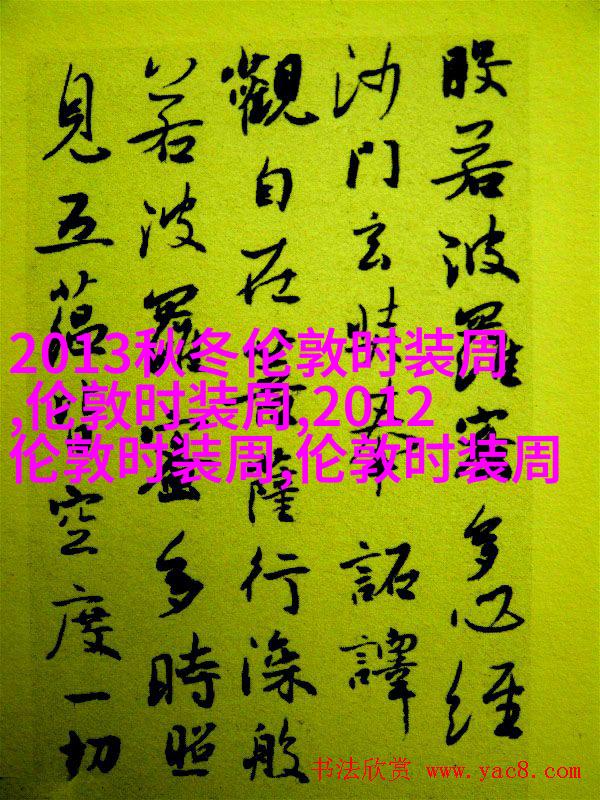 般若波羅蜜多心經
沙門玄奘奉 詔譯
觀自在薩行深般
若波羅蜜多時照
見五蘊空度一切
2013秋冬伦敦时装周
,伦敦时装周,2012
伦敦时装周,伦敦时装周
书法欣赏 www.yac8.com